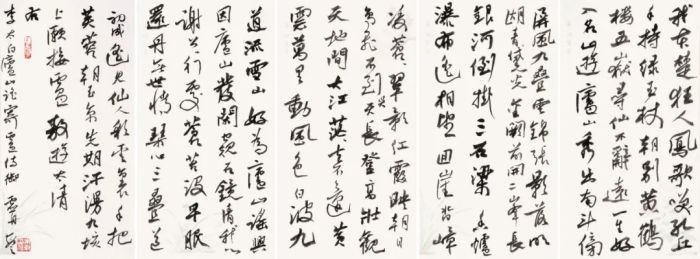 我本楚狂人鳳歌笑孔丘
手持綠玉杖朝別黃鶴
樓五嶽尋仙不辭遠一生好
入名山遊廬山秀出南斗傍
屏風九疊雲錦張影落明
湖青黛光金闕前開二峯長
銀河倒掛三石梁香爐
瀑布遙相望迴崖沓嶂
凌蒼蒼翠影紅霞映朝日
鳥飛不到吳天長登高壯觀
天地間大江茫茫去不還黃
雲萬里動風色白波九
道流雪山好為廬山謠興
因廬山發閑窺石鏡清我心
謝公行處蒼苔沒早服
還丹無世情琴心三疊道
初成遙見仙人彩雲裏手把
芙蓉朝玉京先期汗漫九垓
上願接盧敖遊太清
右
李太白廬山謠寄盧侍御